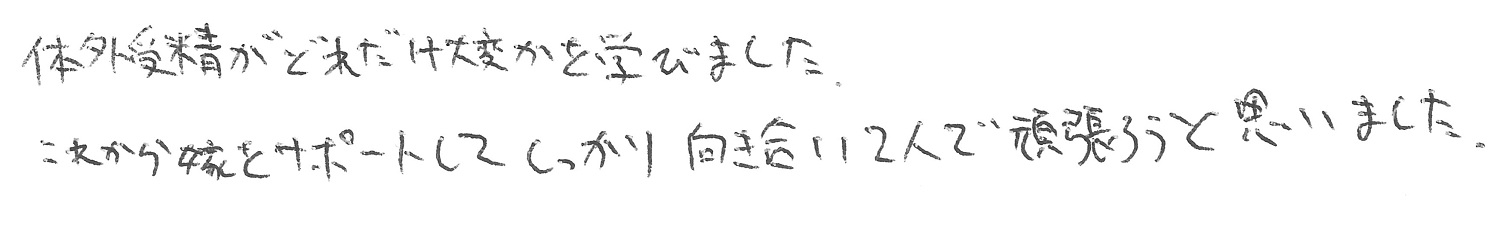 体外受精がどれだけ大変かを学びました.
これから嫁をサポートしてしっかり向き合い2人で頑張ろうと思いました.